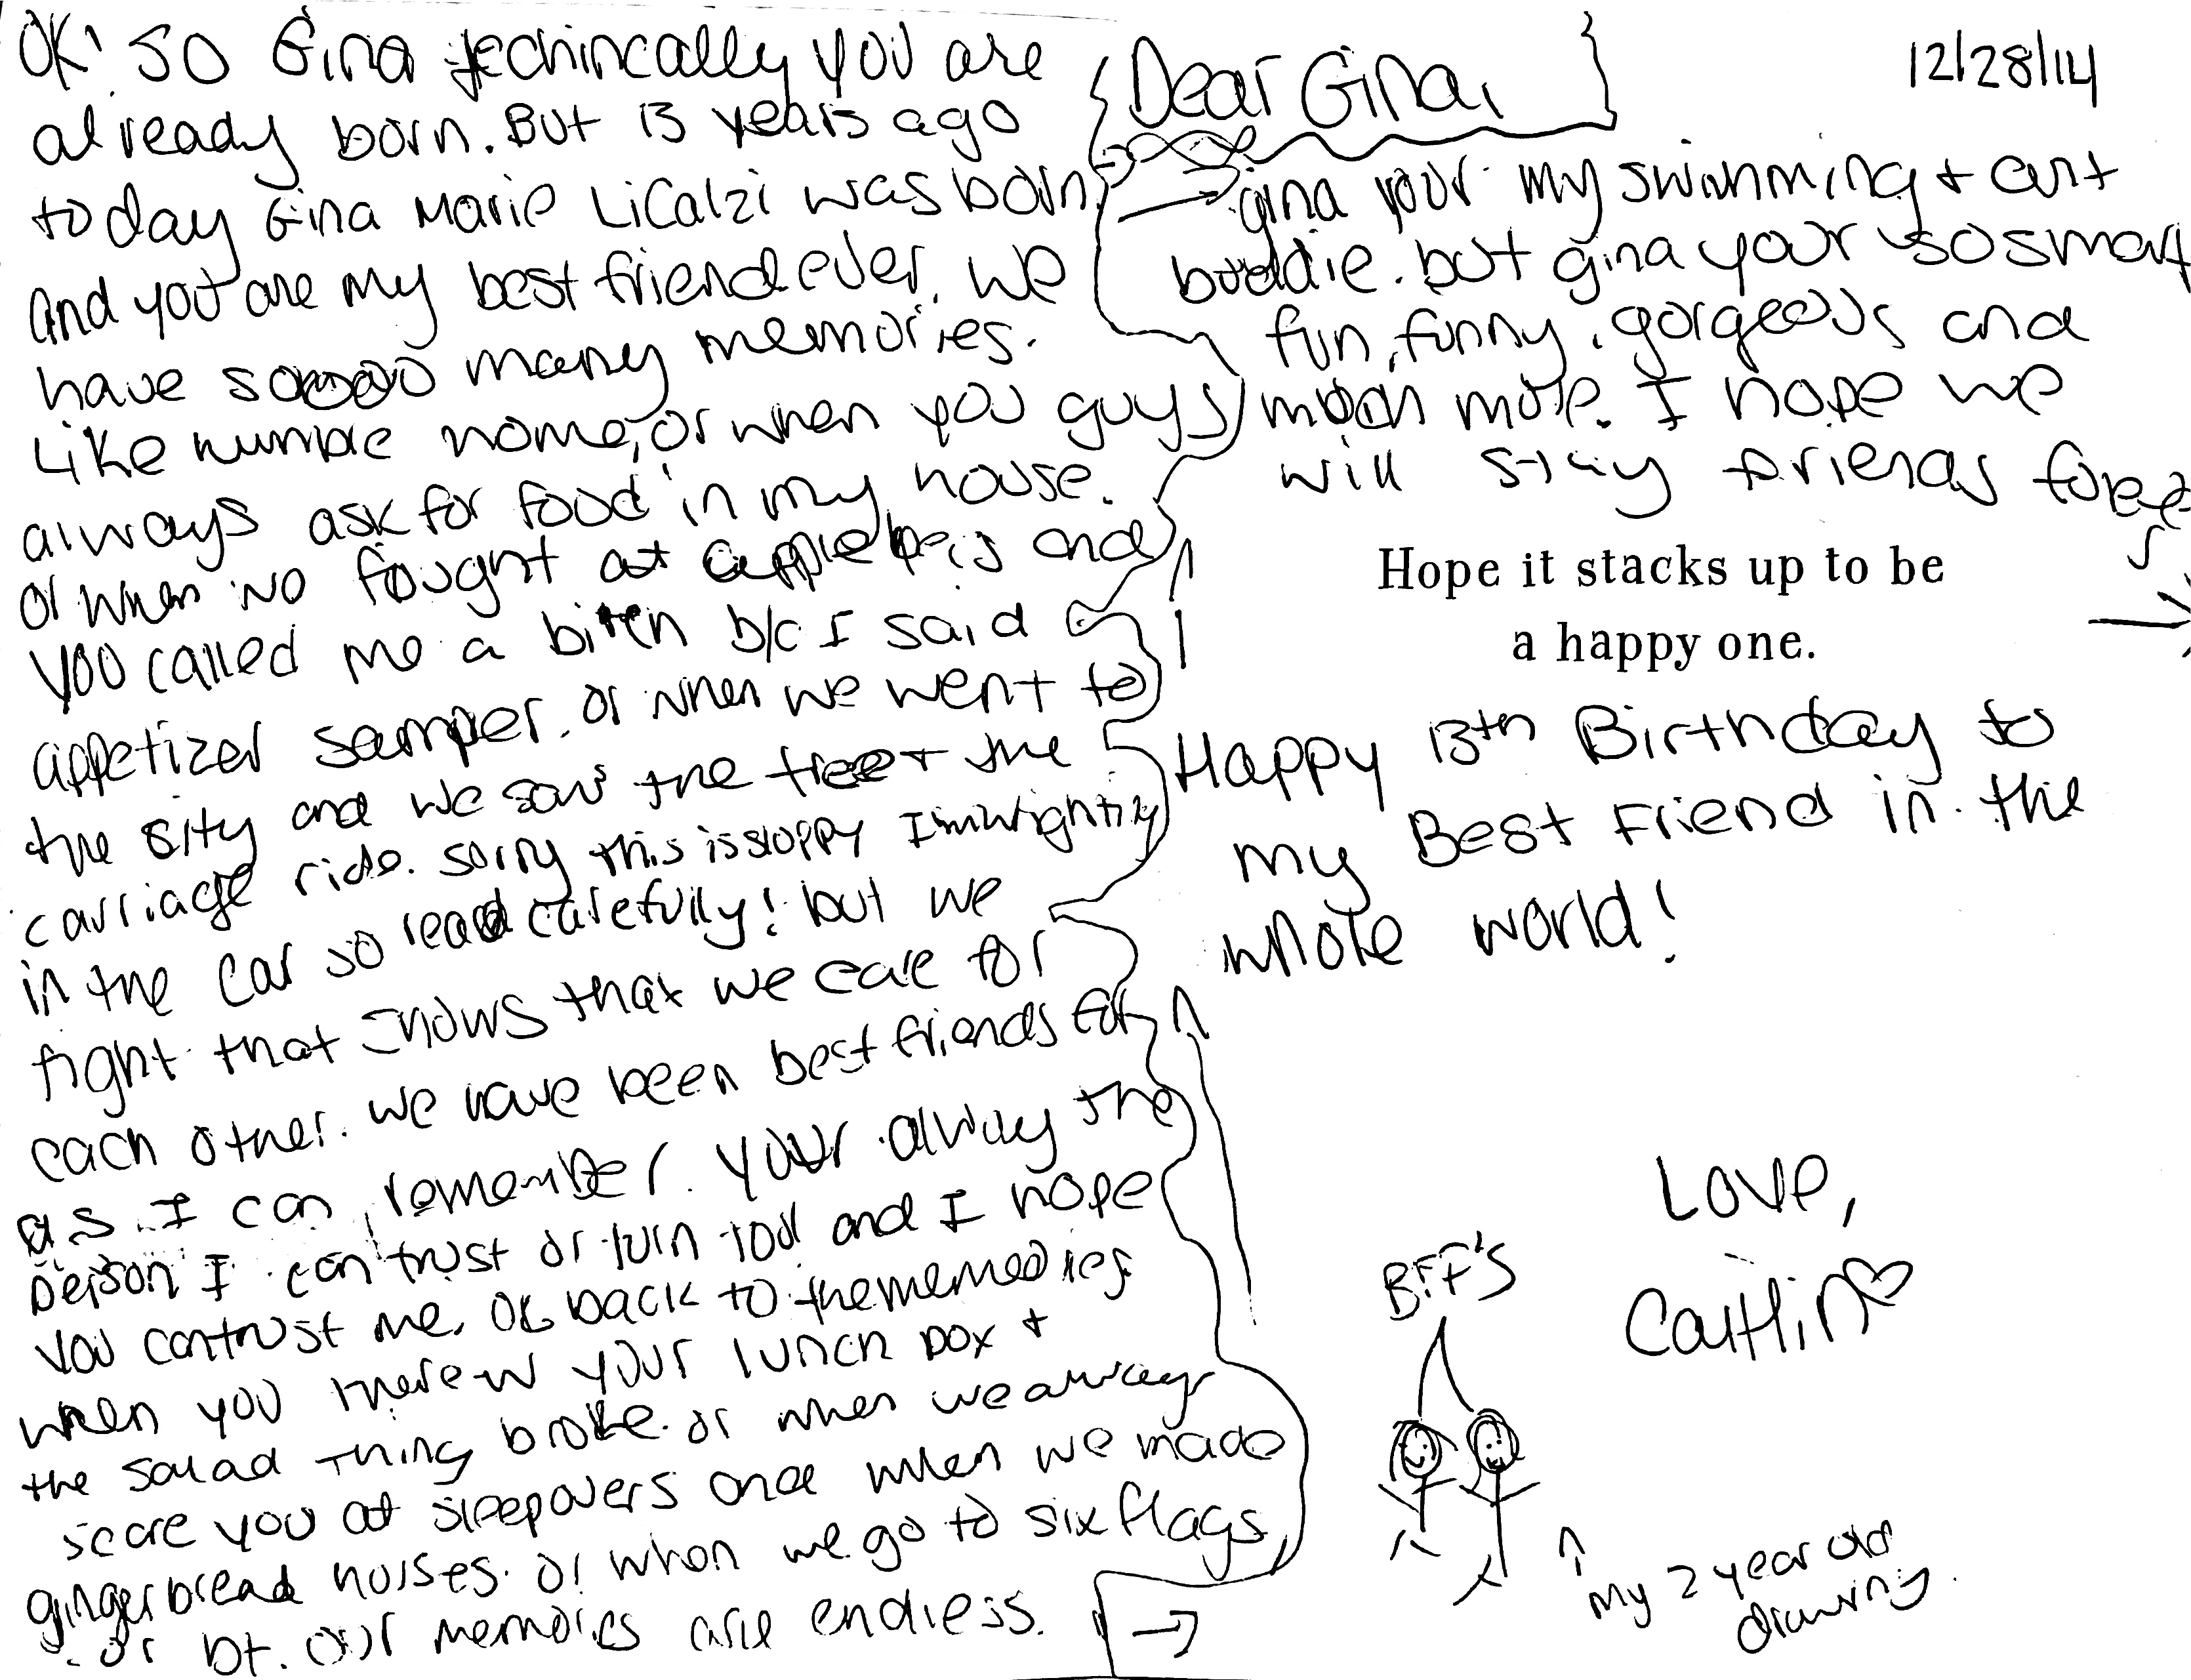 12/28/14
Dear Gina,
OK! SO Gina techincally you are
already born. But 13 years ago
today Gina Marie LiCalzi was born.
And you are my best friend ever. We
have sooooo many memories.
Like humble nome, or when you guys
always ask for food in my house.
or when we fought at applebeis and
you called me a bitch b/c I said
appetizer sampler. or when we went to
the city and we saw the tree + the
carriage ride. sorry this is sloppy I'm wrighting
in the car so read carefully! but we
fight that shows that we care for
each other. we have been best friends for
as I can remember. your alway the
person I can trust or turn to and I hope
you can trust me. Ok back to the memories
when you therew your lunch box +
the salad thing broke. or when we always
scare you at sleepovers and when we made
gingerbread houses. or when we go to six flags,
or bt. our memories are endless.
→
gina your my swimming + art
buddie. but gina your so smart
fun, funny, gorgeous and
much more. I hope we
will stay friends forever
Hope it stacks up to be
a happy one.
Happy 13th Birthday to
my Best Friend in the
whole world!
Love,
Caitlin♡
BFF's
my 2 year old
drawing.